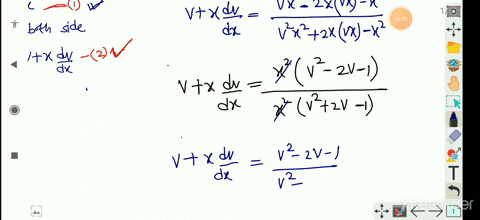 c —(1)
both side
1+x dv/dx —(2)
v+x dv/dx = (vx - 2x(vx) - x²) / (v²x²+2x(vx)-x²)
v+x dv/dx = x²(v²-2v-1) / x²(v²+2v-1)
v+x dv/dx = (v²-2v-1) / (v²-